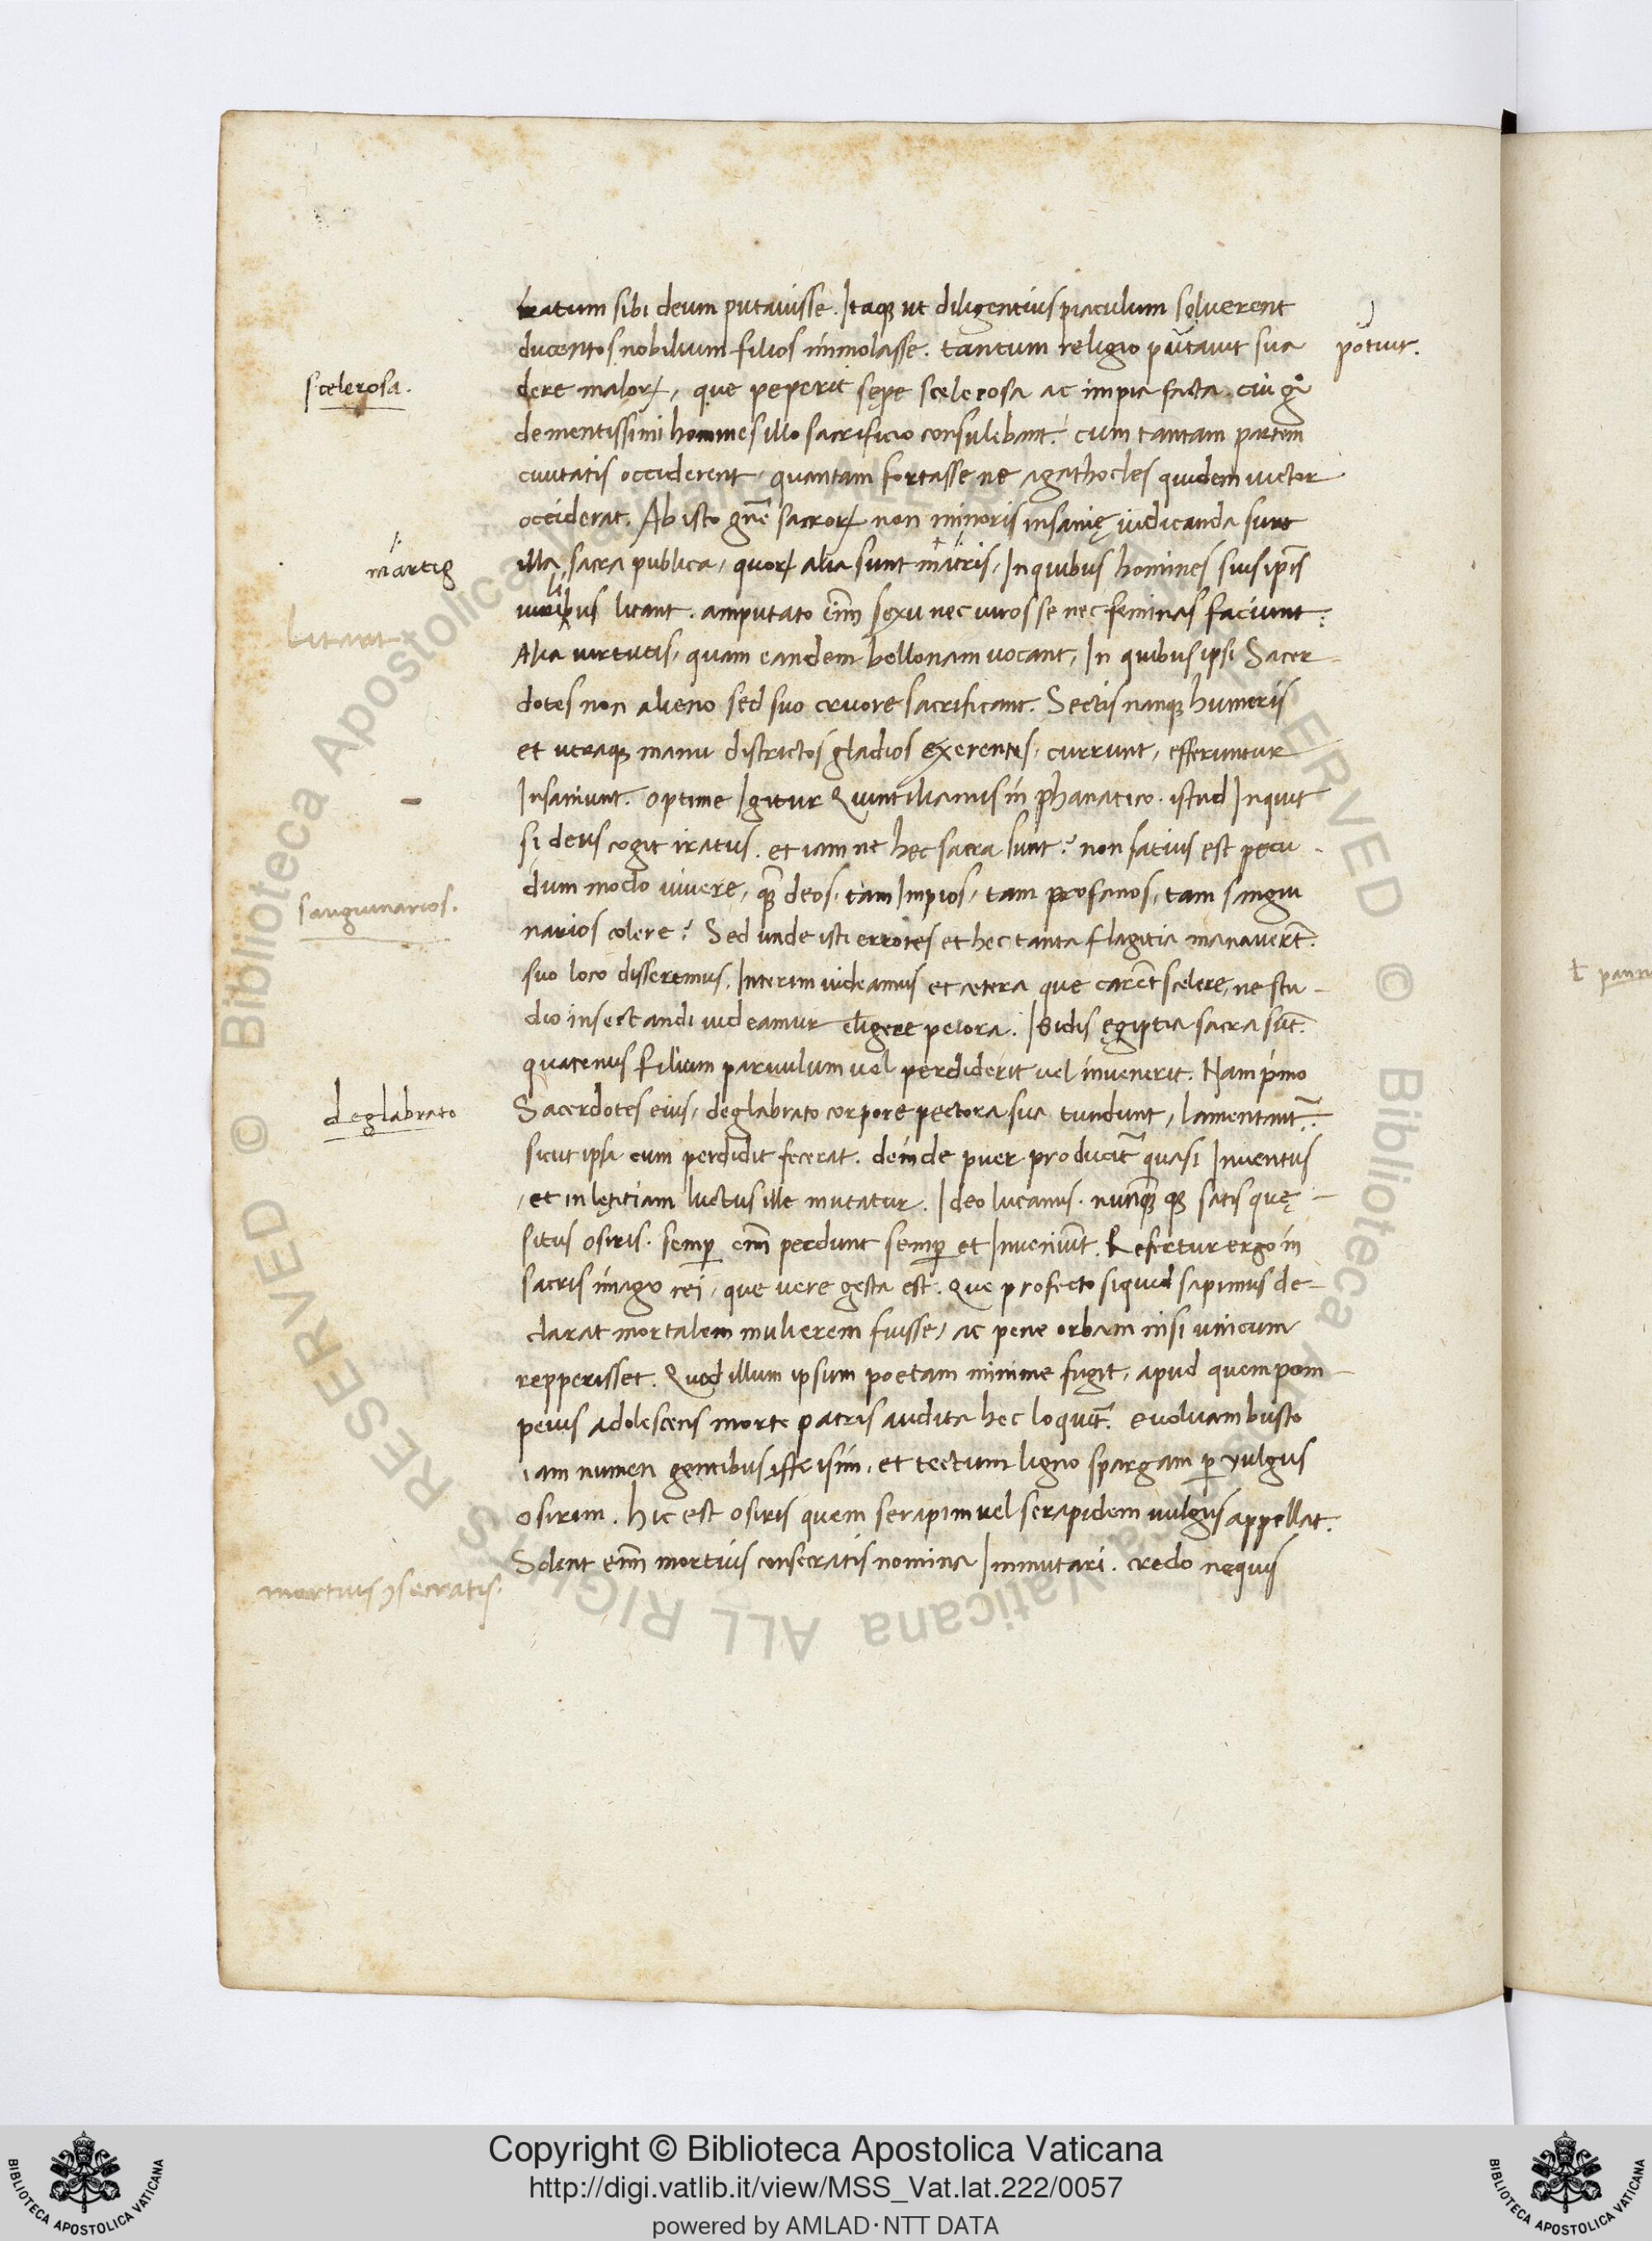 iratum sibi deum putavisse. Itaq; ut diligentius piaculum solverent
ducentos nobilium filios immolasse. tantum religio putavit sua
potuit.
scelerosa.
dere malorꝝ, que peperit sępe scelerosa ac impia facta. cui gͦ
dementissimi homines illo sacrificio consulebant? cum tantam partem
civitatis occiderent, quantam fortasse ne agathocles quidem victor
occiderat. Ab isto gñe sacrorꝝ non minoris insanię iudicanda sunt
martis
illa sacra publica, quorꝝ alia sunt matris, In quibus homines suis ipsis
litant
virilibus litant. amputato eim̄ sexu nec viros se nec feminas faciunt:
Alia virtutis, quam eandem bellonam vocant, In quibus ipsi Sacer
dotes non alieno sed suo cruore sacrificant. Sectis nanq; humeris
et utraq; manu districtos gladios exerentes, currunt, efferuntur
Insaniunt. optime Igitur Quintilianus in phanatico. istud Inquit
si deus cogit iratus. et iam ne hec sacra sunt? non satius est pecu
sanguinarios.
dum modo vivere, q̃ deos, tam Impios, tam profanos, tam sangui
narios colere? Sed unde isti errores et hec tanta flagitia manaver̄t.
suo loco disseremus. Interim videamus et cetera que carēt scelere, ne stu
dio insectandi videamur eligere peiora. Isidis ęgiptia sacra sūt.
quatenus filium parvulum vel perdiderit vel invenerit. Nam p̍mo
deglabrato
Sacerdotes eius, deglabrato corpore pectora sua tundunt, lamentant̄.
sicut ipsa cum perdidit fecerat. deinde puer producit̄ quasi Inventus
et in lętitiam luctus ille mutatur. Ideo lucanus. nunq̃ q; satis quę
situs osiris. semꝑ eim̄ perdunt semꝑ et Inveniūt. Refertur ergo in
sacris imago rei, que vere gesta est. Que profecto siquid sapimus de
clarat mortalem mulierem fuisse, ac pene orbam nisi unicum
repperisset. Quod illum ipsum poetam minime fugit, apud quem pom
peius adolescens morte patris audita hec loquit̄. evolvam busto
iam numen gentibus isim, et tectum ligno spargam ꝑ vulgus
osirim. hic est osiris quem serapim vel serapidem vulgus appellat.
Solent eim̄ mortuis consecratis nomina Inmutari. credo nequis
mortuis ꝯsecratis.
Copyright © Biblioteca Apostolica Vaticana
http://digi.vatlib.it/view/MSS_Vat.lat.222/0057
powered by AMLAD·NTT DATA